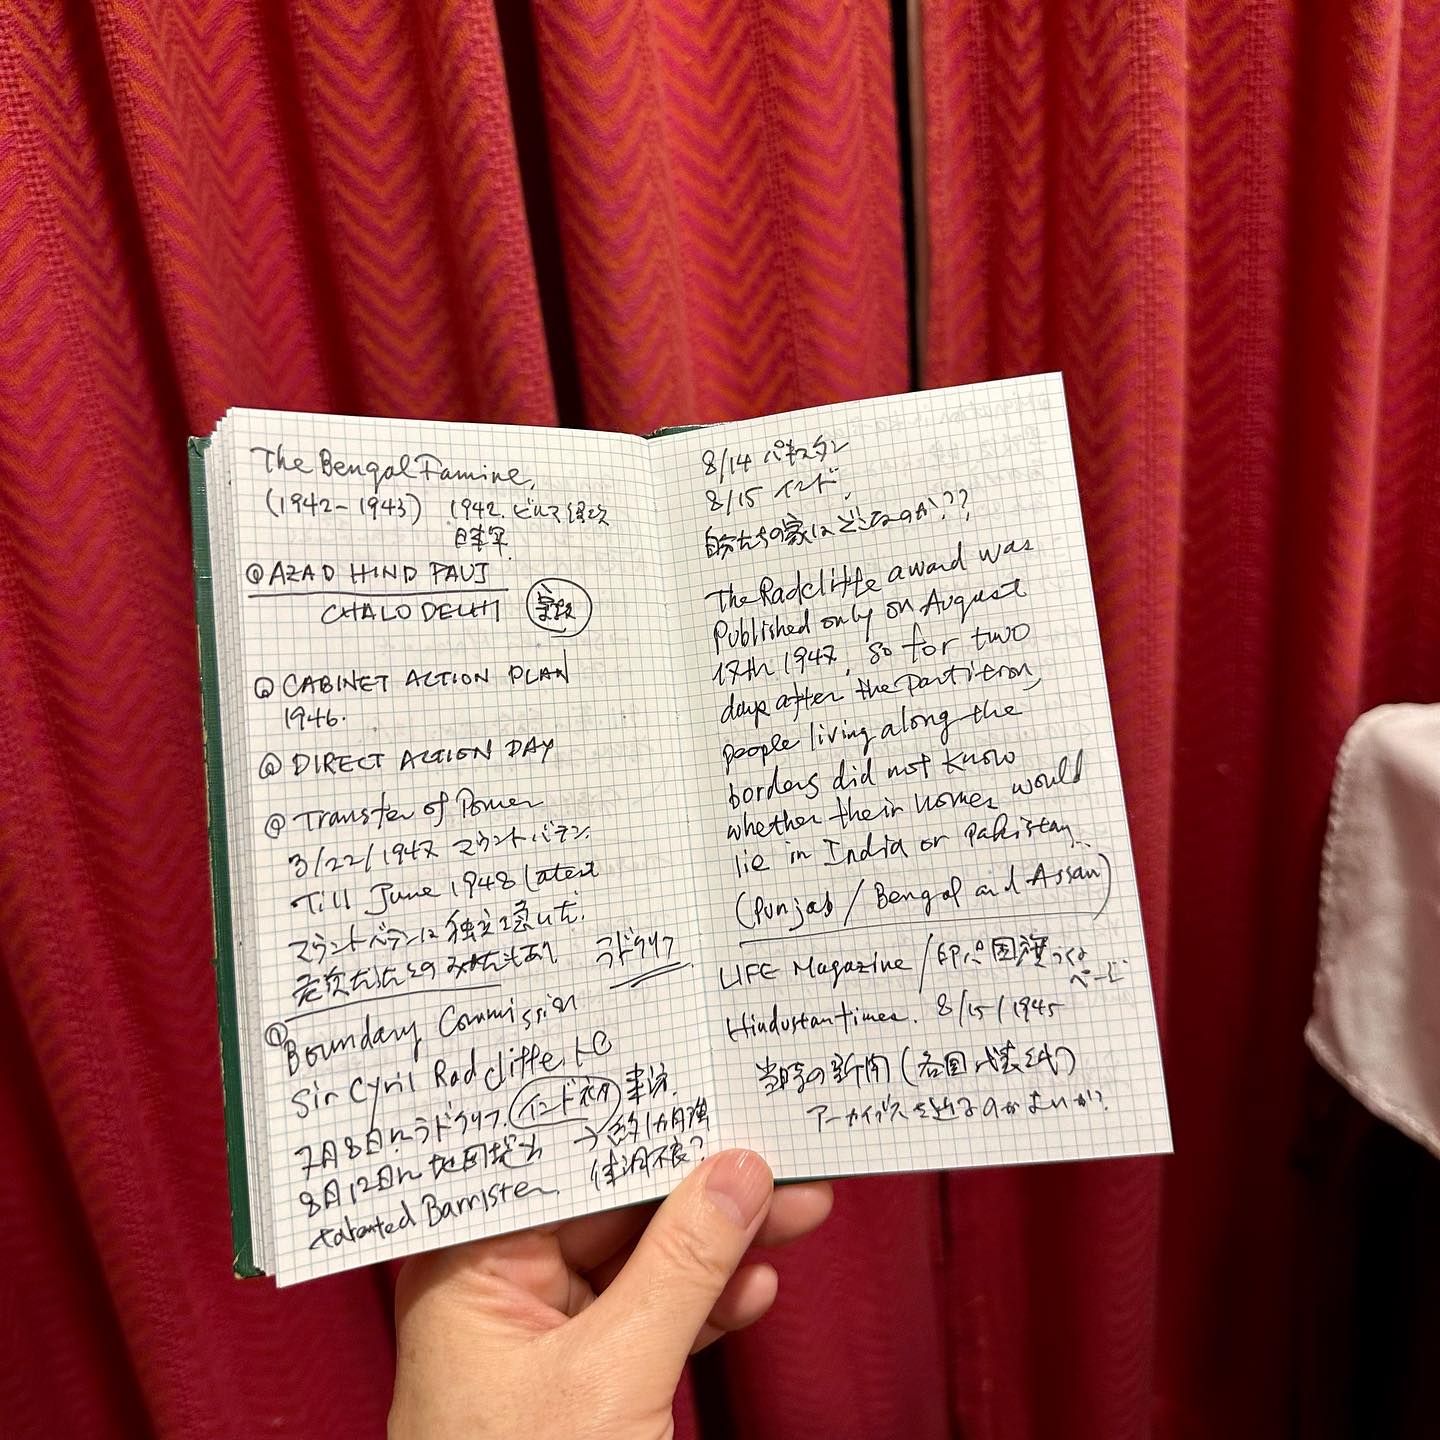 The Bengal Famine,
(1942-1943) 1942. ビルマ侵攻
日本軍
AZAD HIND FAUJ
CHALO DELHI
CABINET ACTION PLAN
1946.
DIRECT ACTION DAY
Transfer of Power
3/22/1947 マウントバテン.
Till June 1948 Latest
マウントバテンは独立を急いだ.
だったとのみかたもあり ラドクリフ
Boundary Commission
Sir Cyril Radcliffe
7月8日にラドクリフ. インド 来訪.
8月12日に地図提出 → 約1カ月強
talented Barrister. 体調不良?
8/14 パキスタン
8/15 インド.
自分たちの家はどこなのか??
The Radcliffe award was
Published only on August
17th 1947, so for two
days after the Partition,
people living along the
borders did not know
whether their homes would
lie in India or Pakistan
(Punjab / Bengal and Assam)
LIFE Magazine / 印パ国旗つくる
ページ
Hindustan times. 8/15/1945
当時の新聞 (各国代表紙)
アーカイブスを のがよいか?